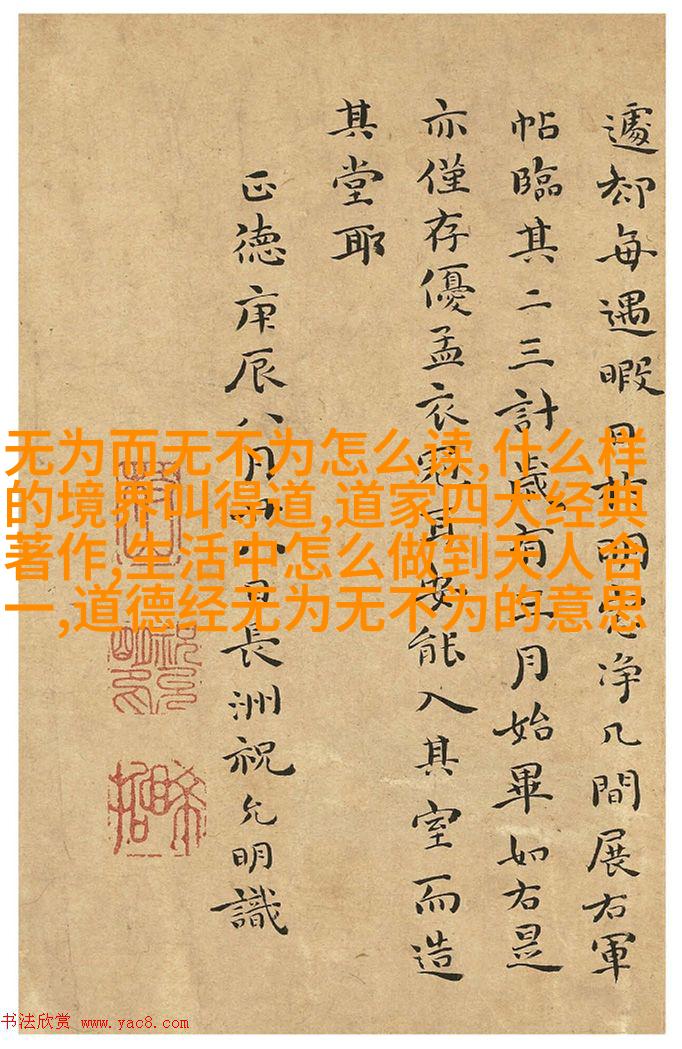 遽却每遇暇日於明窓净几間展右軍
帖臨其二三計歲有三月始畢如右是
亦僅存優孟衣冠耳安能入其室而造
其堂耶
正德庚辰八月日長洲祝允明識
无为而无不为怎么读,什么样
的境界叫得道,道家四大经典
著作,生活中怎么做到天人合
一,道德经无为无不为的意思
书法欣赏 www.yac8.com